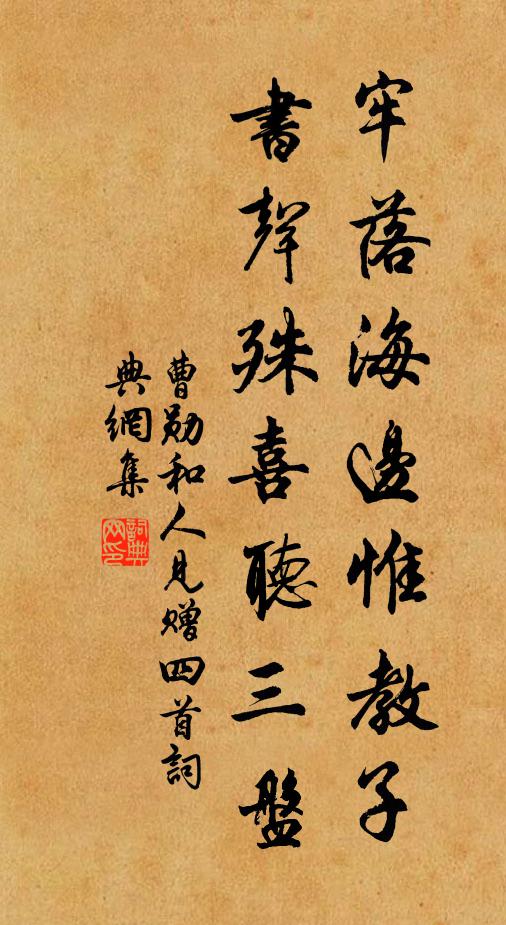 牢落海邊惟教子
書聲殊喜聽三盤
曹勛和人見贈四首詞
典網集
詞典網印